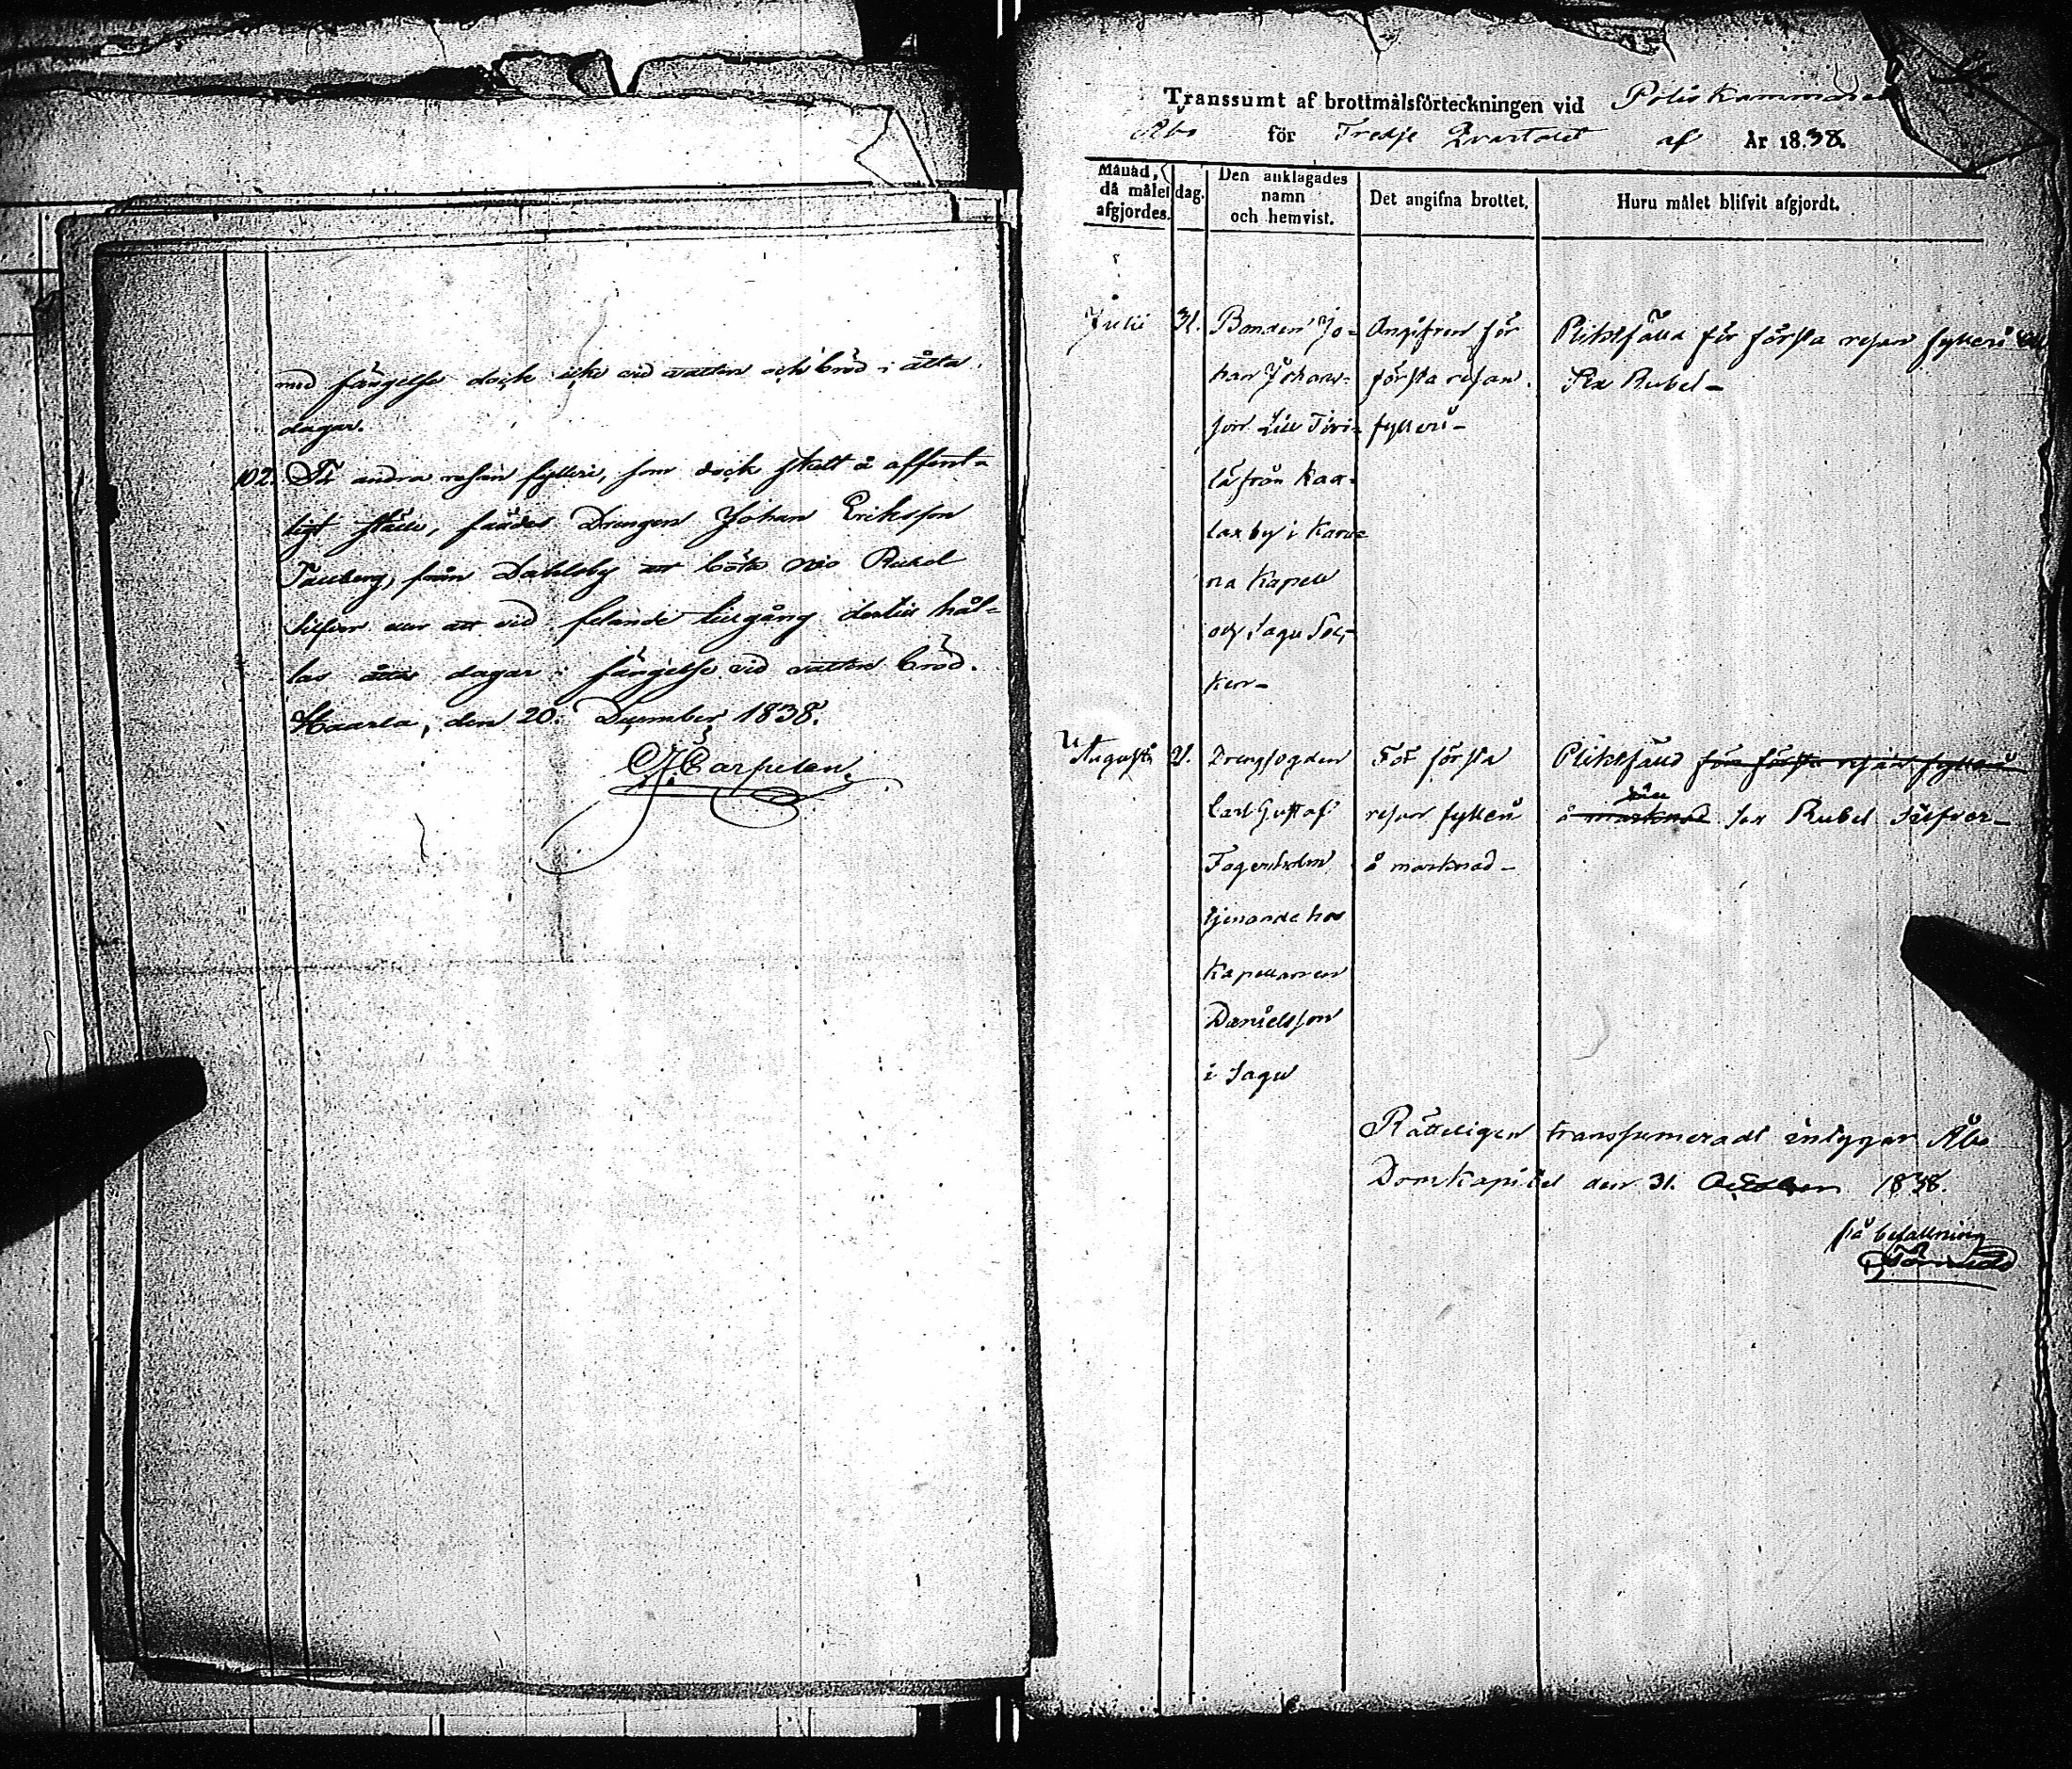 med fängelse dock icke vid vatten och bröd i åtta
dagar.
102. För andra resan fylleri, som dock skett å offent-
ligt ställe, fälldes Drengen Johan Eriksson
från Dahlsby att böta Rubel
Silfver eller att vid felande tillgång dertill hål-
las åtta dagar i fängelse vid vatten bröd.
Haarla, den 20. December 1838.
Carpelan
Transsumt af brottmålsförteckningen vid Poliskammaren
Åbo för Tredje Qvartalet af År 1838.
Månad, då målet afgjordes.
dag.
Den anklagades namn och hemvist.
Det angifna brottet.
Huru målet blifvit afgjordt.
Julii
31.
Bonden Jo-
han Johans-
son Lill
lä från Kaa-
lax by i Karu-
na Kapell
och Sagu Soc-
ken-
Angifven för
första resan
fylleri-
Pliktfälld för första resan fylleri
Sex Rubel-
Augusti
21.
Drengfogden
Carl Gustaf
Fagerholm
tjenande hos
Kapellanen
Danielsson
i Sagu
För första
resan fylleri
å marknad-
Pliktfälld för första resan fylleri
å marknad sex Rubel Silfver-
Rätteligen transsumeradt intygar Åbo
Domkapitel den 31. October 1838.
på befallning